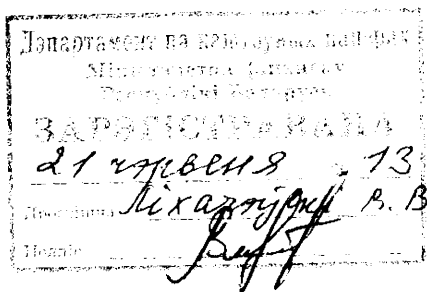 Дэпартамент па каштоўных паперах
Міністэрства фінансаў
Рэспублікі Беларусь
ЗАРЭГІСТРАВАНА
21 чэрвеня 13
Прозвішча В. В
Подпіс